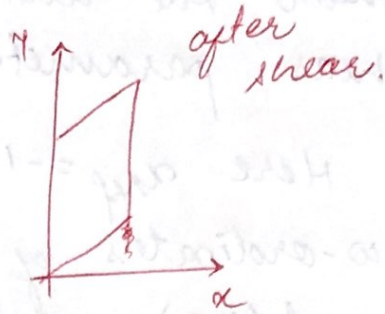 y
after
shear.
x